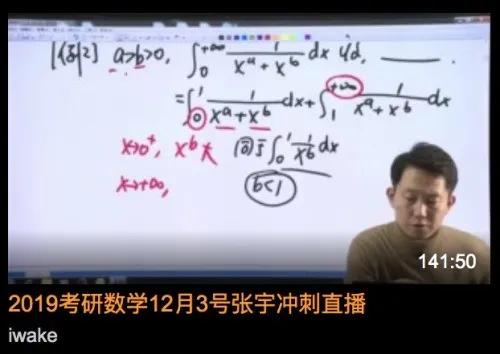 [例2] a>b>0, ∫₀^{+∞} 1/(x^a+x^b) dx 收敛, ____.
=∫₀^1 1/(x^a+x^b) dx+∫₁^{+∞} 1/(x^a+x^b) dx
x→0⁺, x^b大 同 ∫₀^1 1/x^b dx
x→+∞, b<1
141:50
2019考研数学12月3号张宇冲刺直播
iwake